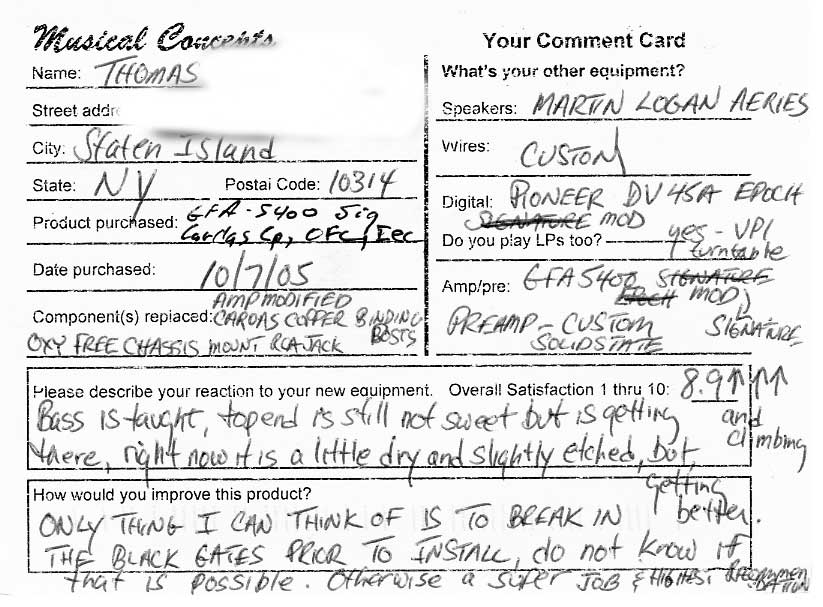 Musical Concepts
Your Comment Card
Name: THOMAS
Street addr
City: Staten Island
State: NY Postal Code: 10314
Product purchased: GFA-5400 Sig
Cardas Cp, OFC, Iec
Date purchased: 10/7/05
AMP MODIFIED
Component(s) replaced: CARDAS COPPER BINDING
POSTS
OXY FREE CHASSIS MOUNT RCA JACK
What's your other equipment?
Speakers: MARTIN LOGAN AERIES
Wires: CUSTOM
Digital: PIONEER DV 45A EPOCH
SIGNATURE MOD
Do you play LPs too? yes - VPI
turntable
Amp/pre: GFA 5400 SIGNATURE
EPOCH MOD
SIGNATURE
PREAMP - CUSTOM
SOLIDSTATE
Please describe your reaction to your new equipment. Overall Satisfaction 1 thru 10: 8.9↑↑↑
and
climbing
Bass is taught, topend is still not sweet but is getting
there, right now it is a little dry and slightly etched, but
getting
better.
How would you improve this product?
ONLY THING I CAN THINK OF IS TO BREAK IN
THE BLACK GATES PRIOR TO INSTALL, do not know if
that is possible. Otherwise a super JOB & HIGHEST RECOMMEN
DATION